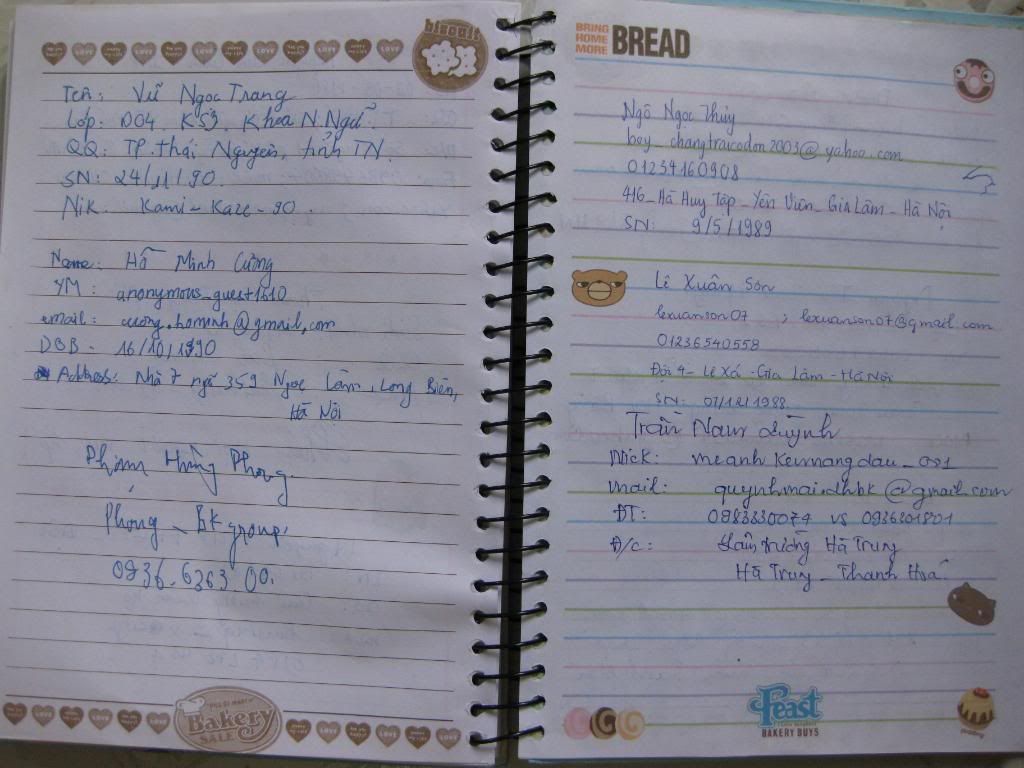 biscuit
Tên: Vũ Ngọc Trang
Lớp: D04 K53. Khoa N.Ngữ.
QQ: TP. Thái Nguyên, tỉnh TN.
SN: 24/11/90.
Nik. Kami-Kaze-90.
Name: Hồ Minh Cường
YM: anonymous_guest1610
email: cuong.hominh@gmail.com
DOB - 16/10/1990
Address: Nhà 7 ngõ 359 Ngọc Lâm, Long Biên,
Hà Nội
Phạm Hùng Phong
Phong _ BK group.
0936.6363.00.
Bakery
SALE
BRING HOME MORE BREAD
Ngô Ngọc Thúy
boy_changtraicodon2003@yahoo.com
01234160908
416_Hà Huy Tập_Yên Viên_Gia Lâm_Hà Nội
SN: 9/5/1989
Lê Xuân Sơn
lexuanson07 ; lexuanson07@gmail.com
01236540558
Đội 4 - Lê Xá - Gia Lâm - Hà Nội
SN: 07/12/1988
Trần Nam Quỳnh
Nick: meanhkeumangdau_001
mail: quynhmai.dhbk@gmail.com
ĐT: 0983330074 vs 0936301801
Đ/c: Hà Trung
Hà Trung - Thanh Hoá.
Feast
BAKERY BUYS
pudding